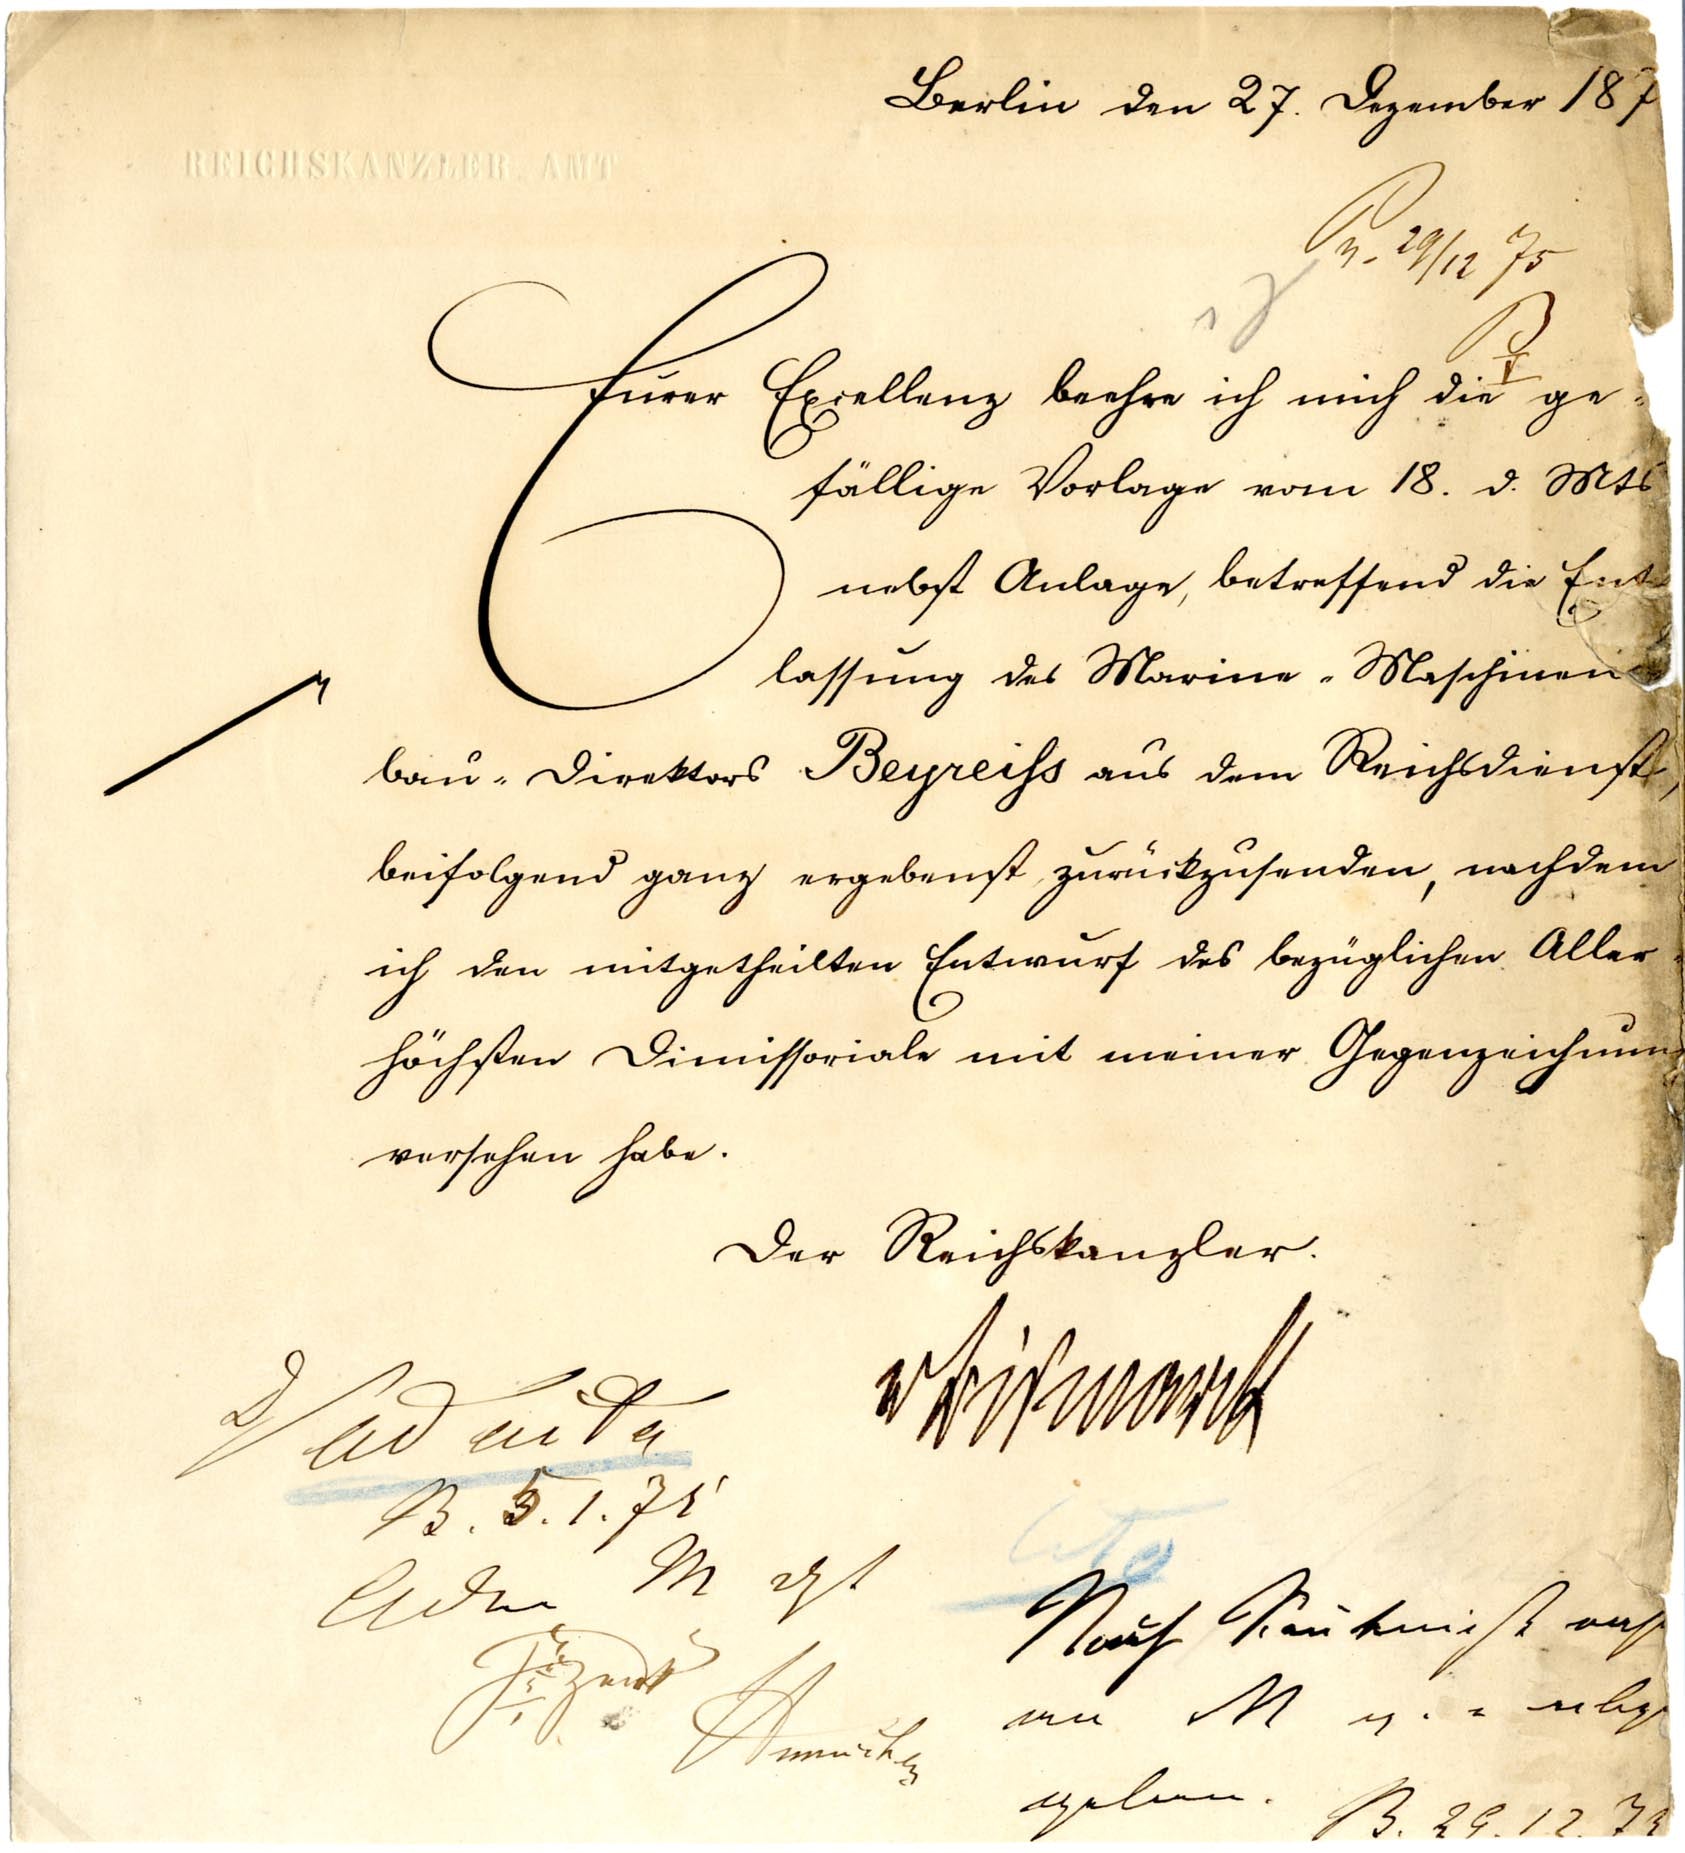 Berlin den 27. Dezember 187
REICHSKANZLER-AMT
29/12 75
Eurer Excellenz beehre ich mich die ge-
fällige Vorlage vom 18. d. Mts
nebst Anlage, betreffend die Ent
lassung des Marine-Maschinen
bau-Direktors Beyreiss aus dem Reichsdienst,
beifolgend ganz ergebenst zurückzusenden, nachdem
ich den mitgetheilten Entwurf des bezüglichen Aller-
höchsten Dimissoriale mit meiner Gegenzeichnun
versehen habe.
Der Reichskanzler.
v Bismarck
ad acta
B. 5.1.75
Nach Kenntniß
an M
geben. B. 29.12.75